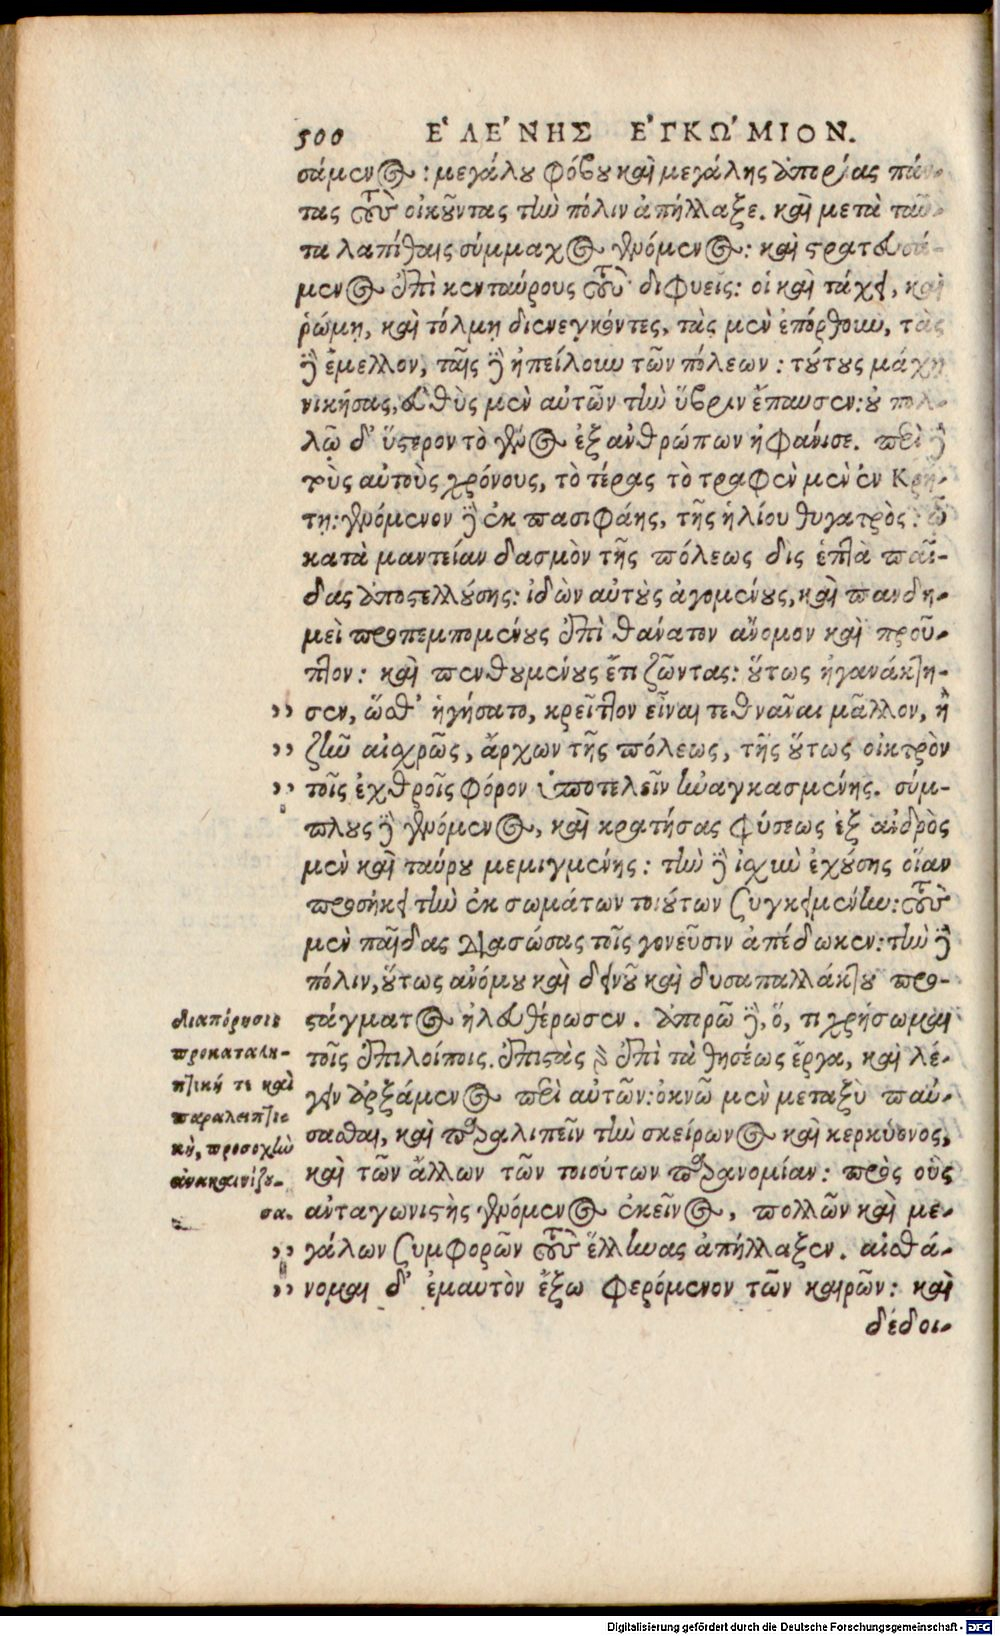 500 ΕʹΛΕʹΝΗΣ ΕʹΓΚΩʹΜΙΟΝ.
σάμενος : μεγάλου φόβου καὶ μεγάλης ἀπορίας πάν-
τας τοὺς οἰκοῦντας τὴν πόλιν ἀπήλλαξε. καὶ μετὰ ταῦ-
τα λαπίθαις σύμμαχος γενόμενος: καὶ στρατευσά-
μενος ἐπὶ κενταύρους τοὺς διφυεῖς: οἳ καὶ τάχει, καὶ
ῥώμῃ, καὶ τόλμῃ διενεγκόντες, τὰς μὲν ἐπόρθουν, τὰς
δὲ ἔμελλον, ταῖς δὲ ἠπείλουν τῶν πόλεων : τούτους μάχῃ
νικήσας, εὐθὺς μὲν αὐτῶν τὴν ὕβριν ἔπαυσεν: οὐ πολ-
λῷ δ' ὕστερον τὸ γένος ἐξ ἀνθρώπων ἠφάνισε. περὶ δὲ
τοὺς αὐτοὺς χρόνους, τὸ τέρας τὸ τραφὲν μὲν ἐν Κρή-
τῃ: γενόμενον δὲ ἐκ πασιφάης, τῆς ἡλίου θυγατρὸς : ᾧ
κατὰ μαντείαν δασμὸν τῆς πόλεως δὶς ἑπτὰ παῖ-
δας ἀποστελλούσης: ἰδὼν αὐτοὺς ἀγομένους, καὶ πανδη-
μεὶ προπεμπομένους ἐπὶ θάνατον ἄνομον καὶ προῦ-
πτον: καὶ πενθουμένους ἔτι ζῶντας: οὕτως ἠγανάκτη-
›› σεν, ὥσθ' ἡγήσατο, κρεῖττον εἶναι τεθνάναι μᾶλλον, ἢ
›› ζῆν αἰσχρῶς, ἄρχων τῆς πόλεως, τῆς οὕτως οἰκτρὸν
›› τοῖς ἐχθροῖς φόρον ὑποτελεῖν ἠναγκασμένης. σύμ-
πλους δὲ γενόμενος, καὶ κρατήσας φύσεως ἐξ ἀνδρὸς
μὲν καὶ ταύρου μεμιγμένης : τὴν δὲ ἰσχὺν ἐχούσης οἵαν
προσήκει τὴν ἐκ σωμάτων τοιούτων συγκειμένην: τοὺς
μὲν παῖδας διασώσας τοῖς γονεῦσιν ἀπέδωκεν: τὴν δὲ
πόλιν, οὕτως ἀνόμου καὶ δεινοῦ καὶ δυσαπαλλάκτου προ-
στάγματος ἠλευθέρωσεν. ἀπορῶ δὲ, ὅ, τι χρήσωμαι
τοῖς ἐπιλοίποις. ἐπιστὰς γὰρ ἐπὶ τὰ θησέως ἔργα, καὶ λέ-
γειν ἀρξάμενος περὶ αὐτῶν: ὀκνῶ μὲν μεταξὺ παύ-
σασθαι, καὶ παραλιπεῖν τὴν σκείρωνος καὶ κερκύονος,
καὶ τῶν ἄλλων τῶν τοιούτων παρανομίαν: πρὸς οὓς
ἀνταγωνιστὴς γενόμενος ἐκεῖνος, πολλῶν καὶ με-
›› γάλων συμφορῶν τοὺς ἕλληνας ἀπήλλαξεν. αἰσθά-
›› νομαι δ' ἐμαυτὸν ἔξω φερόμενον τῶν καιρῶν: καὶ
δέδοι-
διαπόρησις
προκαταλη-
πτική τε καὶ
παραλειπτι-
κὴ, προσοχὴν
ἀνακαινίζου-
σα.
Digitalisierung gefördert durch die Deutsche Forschungsgemeinschaft - DFG